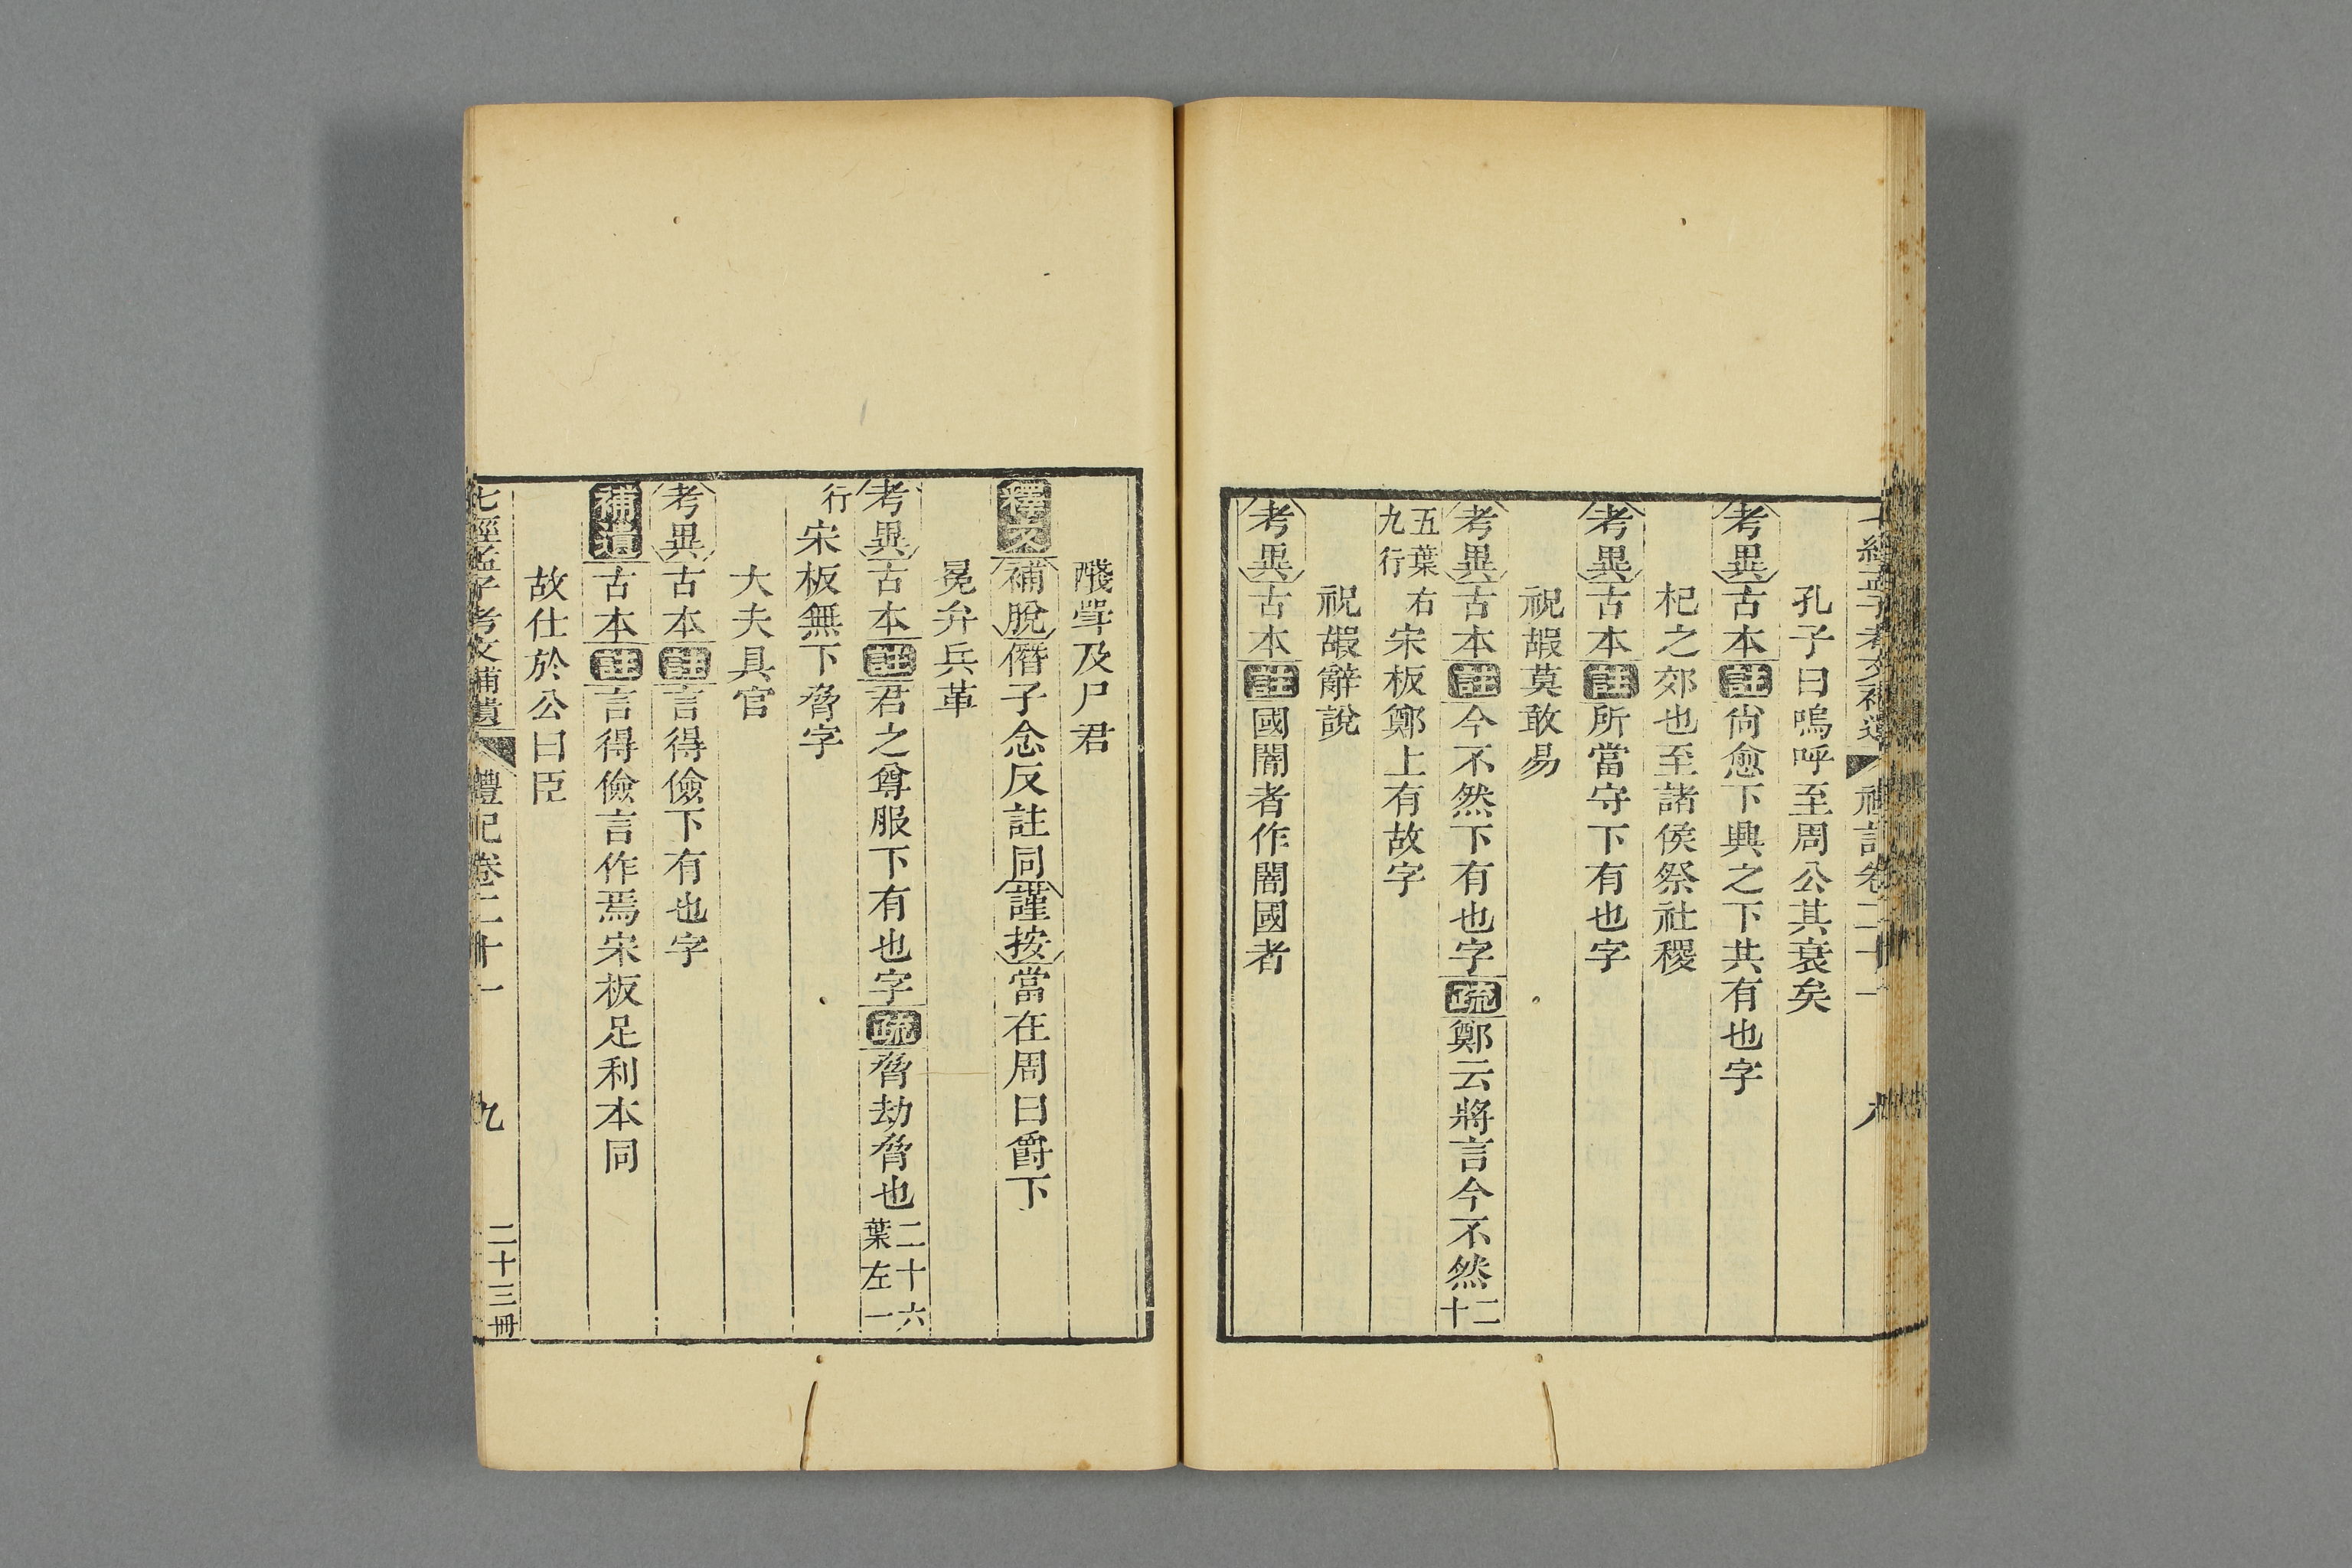 七經孟子考文補遺 禮記卷二十一 八
孔子曰嗚呼至周公其衰矣
考異古本註尙愈下興之下共有也字
杞之郊也至諸侯祭社稷
考異古本註所當守下有也字
祝嘏莫敢易
考異古本註今不然下有也字疏鄭云將言今不然二十
五葉右九行宋板鄭上有故字
祝嘏辭說
考異古本註國闇者作闇國者
醆斝及尸君
釋文補脫僭子念反註同謹按當在周曰爵下
冕弁兵革
考異古本註君之尊服下有也字疏脅劫脅也二十六葉左一
行宋板無下脅字
大夫具官
考異古本註言得儉下有也字
補遺古本註言得儉言作焉宋板足利本同
故仕於公曰臣
七經孟子考文補遺 禮記卷二十一 九 二十三冊